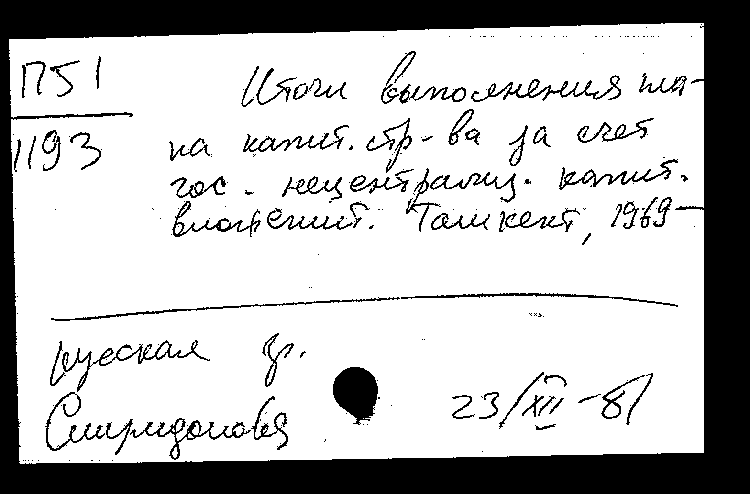 П51
1193
Итоги выполнения пла-
на капит. стр-ва за счет
гос. нецентрализ. капит.
вложений. Ташкент, 1969-
русская гр.
Спиридонова
23/XII-81